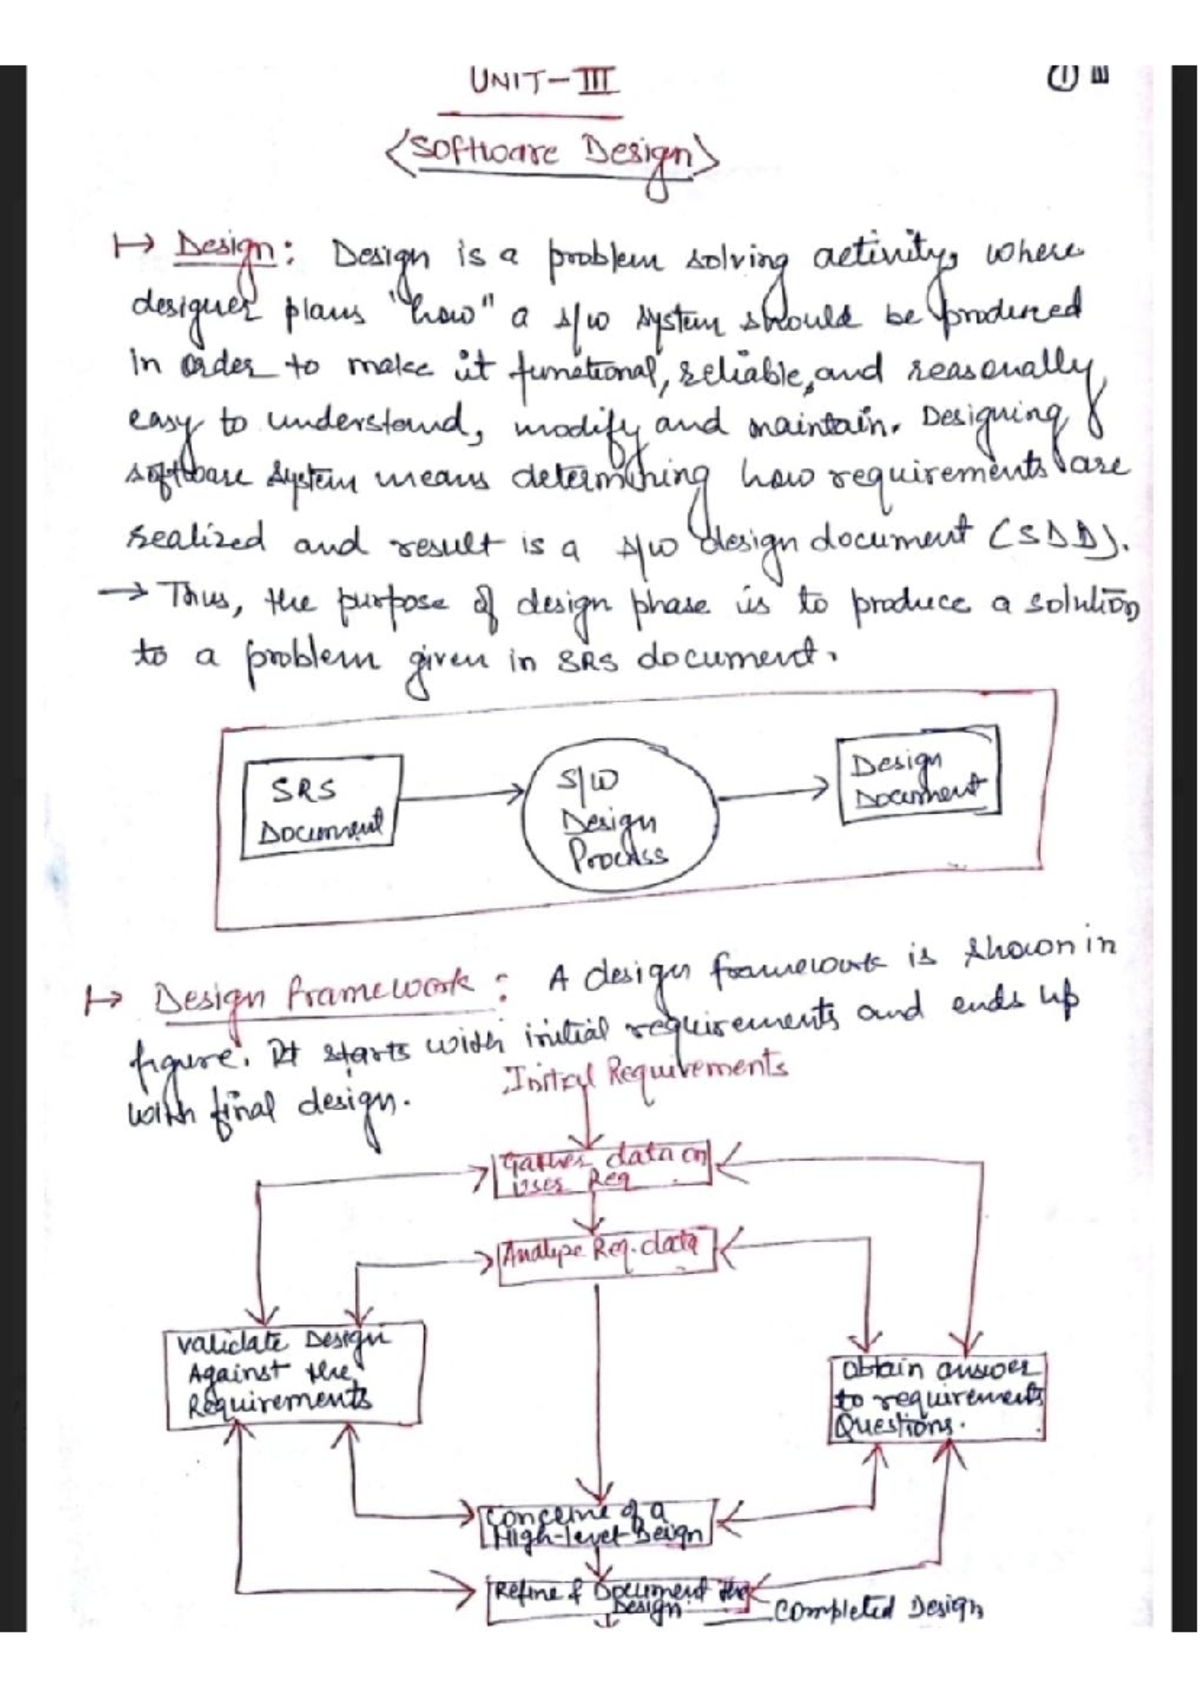 UNIT-III
① III
<Software Design>
↦ Design: Design is a problem solving activity, where
designer plans "how" a s/w system should be produced
in order to make it functional, reliable, and reasonally
easy to understand, modify and maintain. Designing
software system means determining how requirements are
realized and result is a s/w design document (SDD).
→ Thus, the purpose of design phase is to produce a solution
to a problem given in SRS document.
SRS
Document
S/W
Design
Process
Design
Document
↦ Design framework: A design framework is shown in
figure. It starts with initial requirements and ends up
with final design.
Initial Requirements
Gather data on
User Req
Analyze Req. data
Validate Design
Against the
Requirements
obtain answer
to requirements
Questions.
Conceive of a
High-level Deign
Refine & Document the
Design
Completed Design